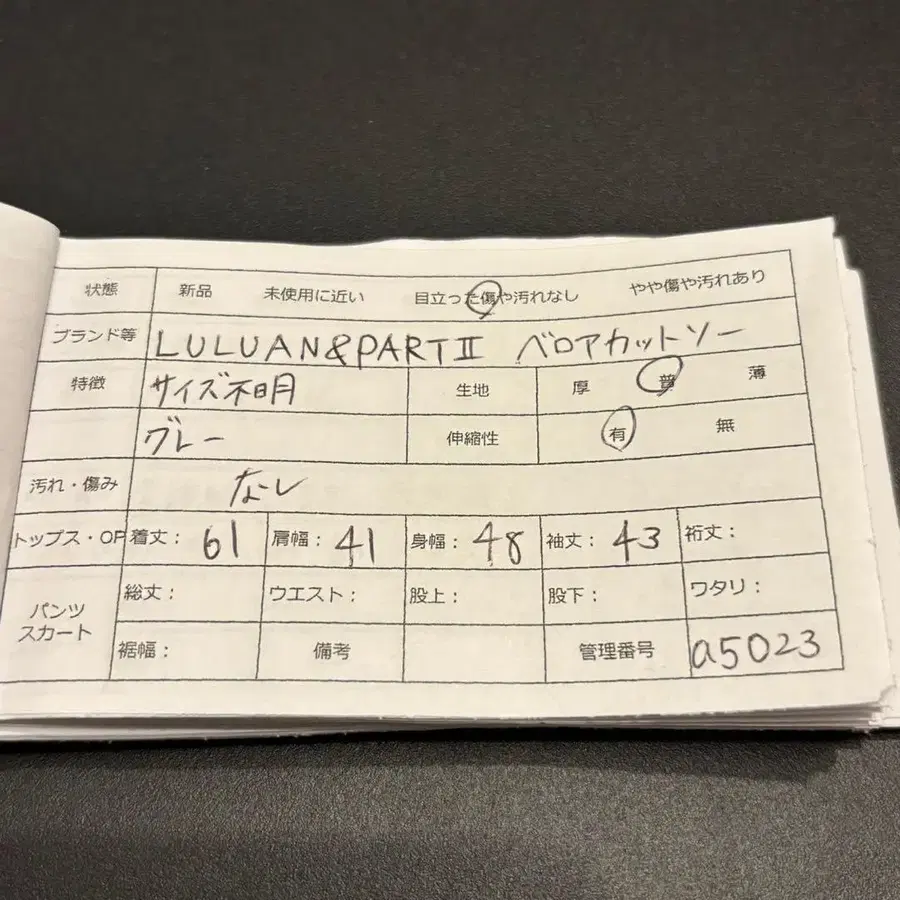 状態 新品 未使用に近い 目立った傷や汚れなし やや傷や汚れあり
ブランド等 LULUAN&PARTⅡ ベロアカットソー
特徴 サイズ不明 生地 厚 普 薄
グレー 伸縮性 有 無
汚れ・傷み なし
トップス・OP 着丈： 61 肩幅： 41 身幅： 48 袖丈： 43 裄丈：
パンツ スカート 総丈： ウエスト： 股上： 股下： ワタリ：
裾幅： 備考 管理番号 a5023